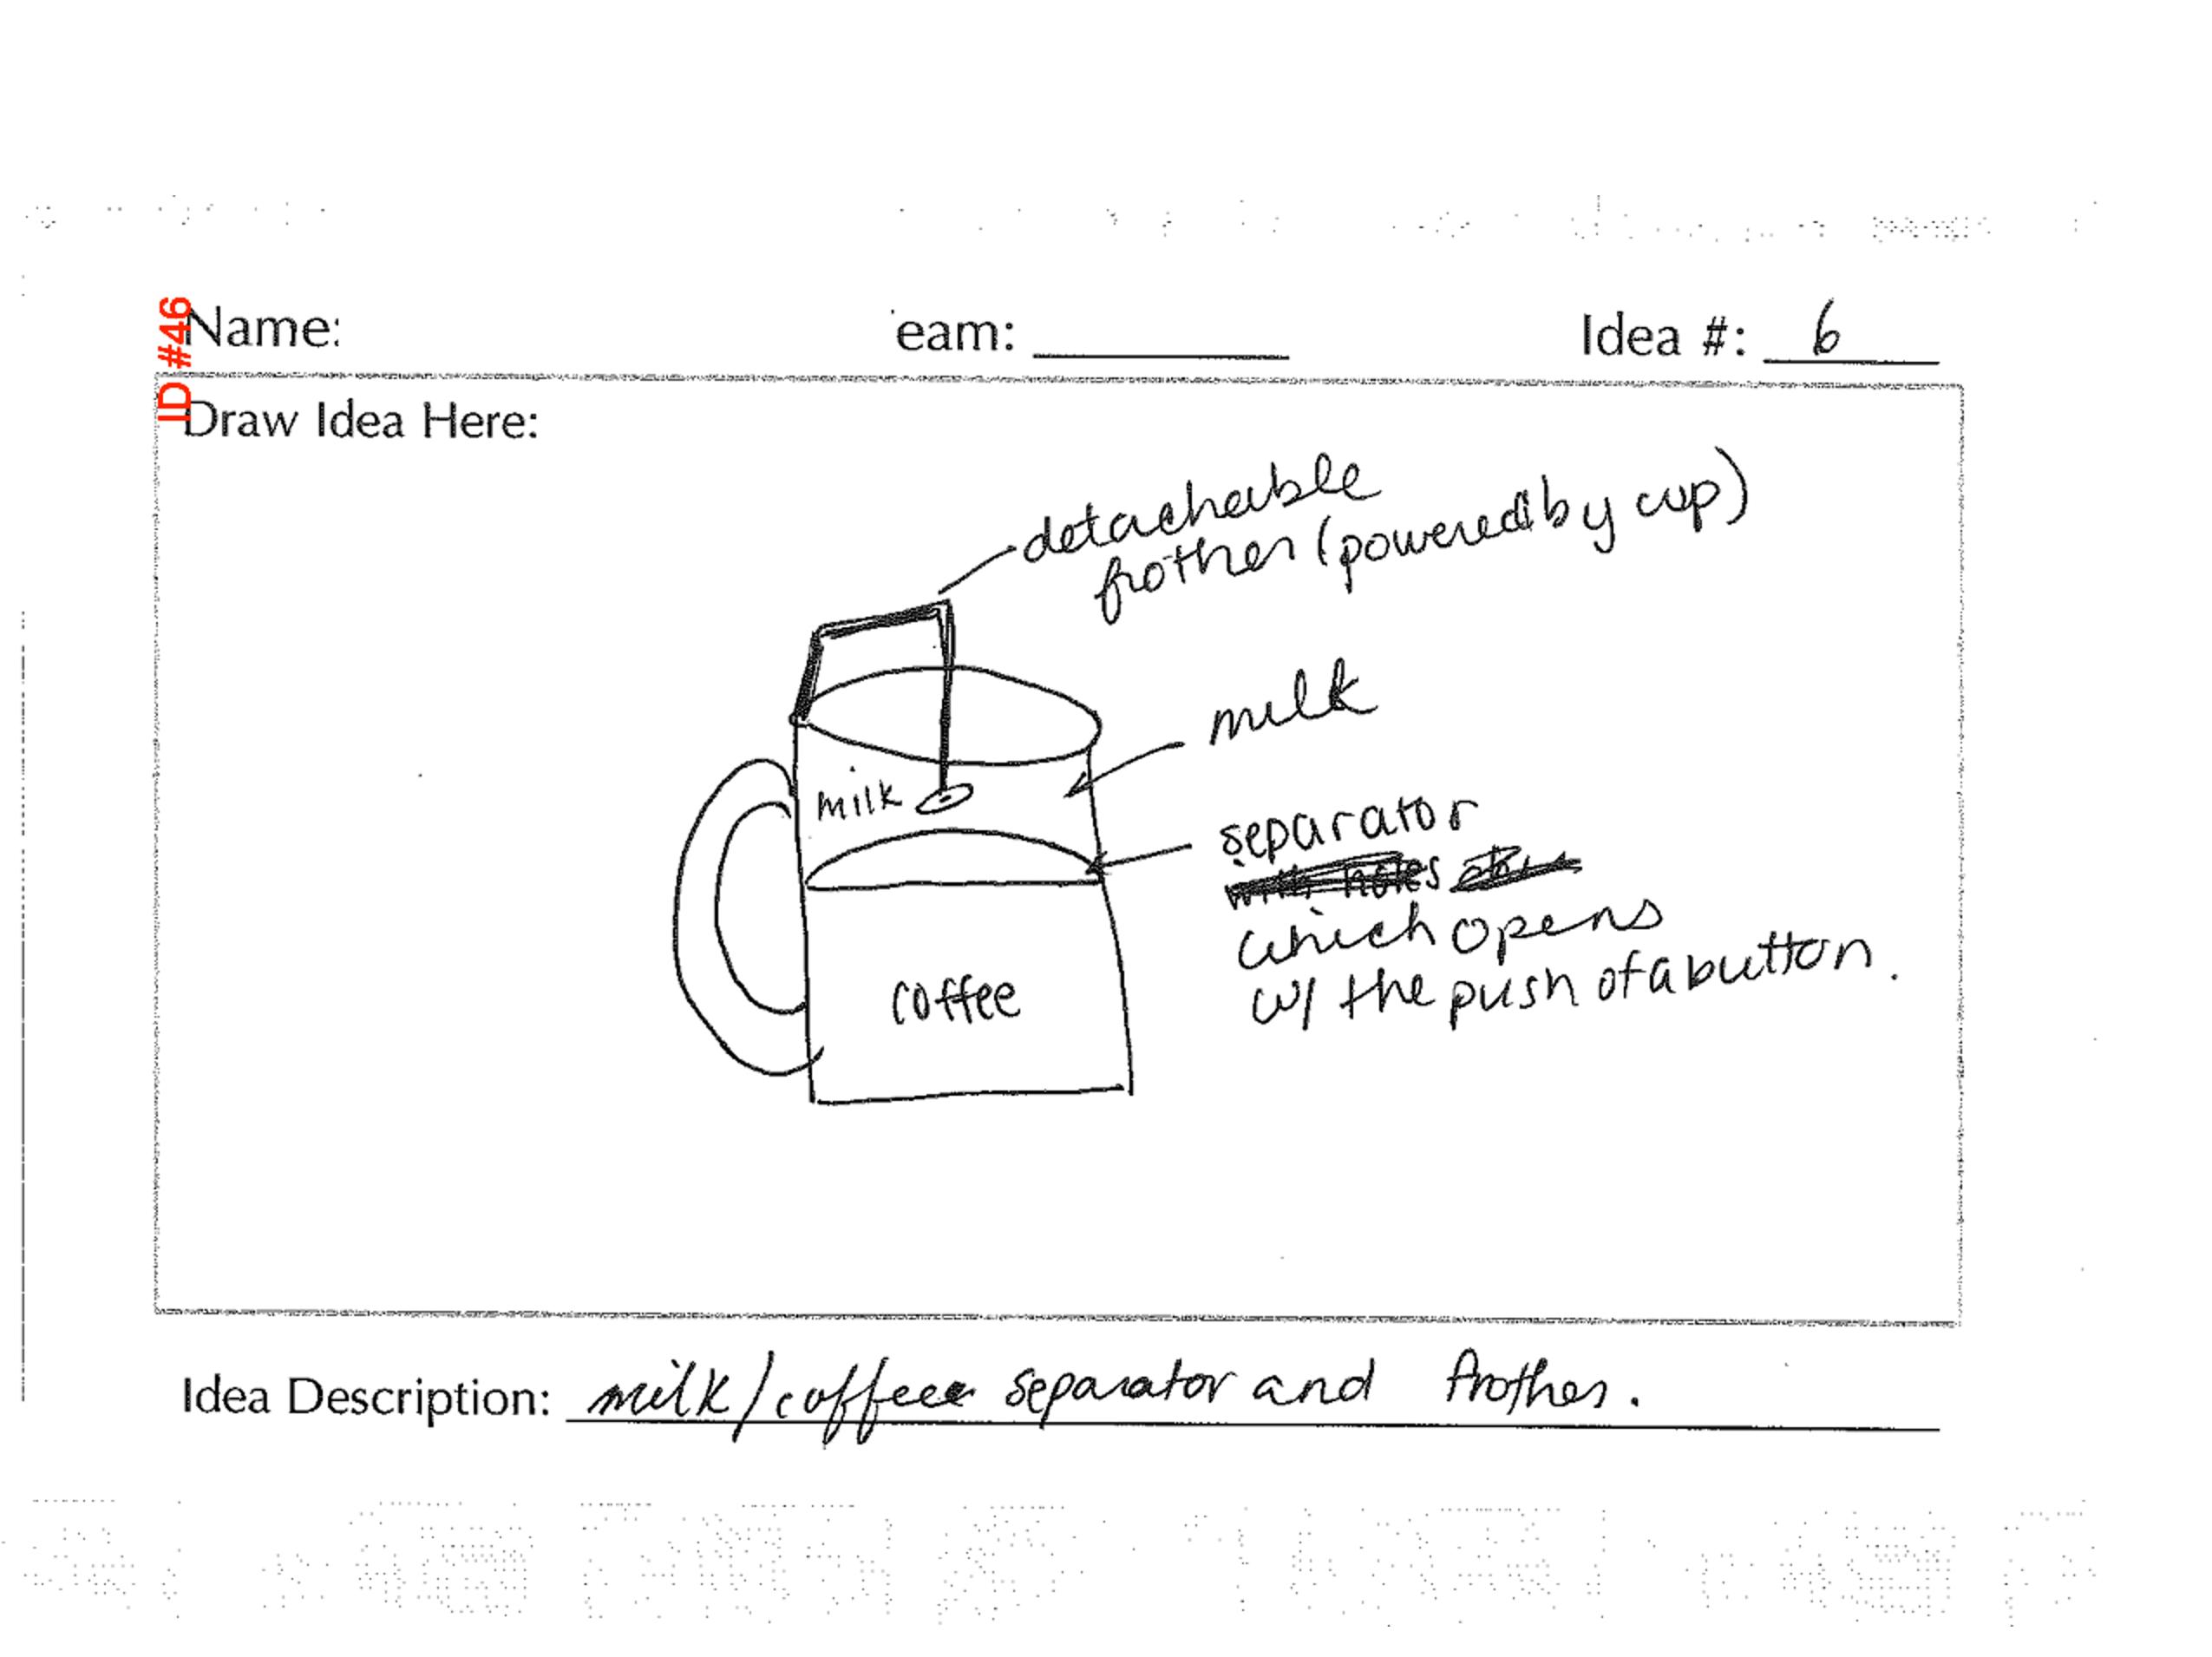 ID #46
Name:
eam:
Idea #: 6
Draw Idea Here:
detacheable
frother (powered by cup)
milk
milk
separator
which opens
w/ the push of a button.
coffee
Idea Description: milk/coffee separator and frother.